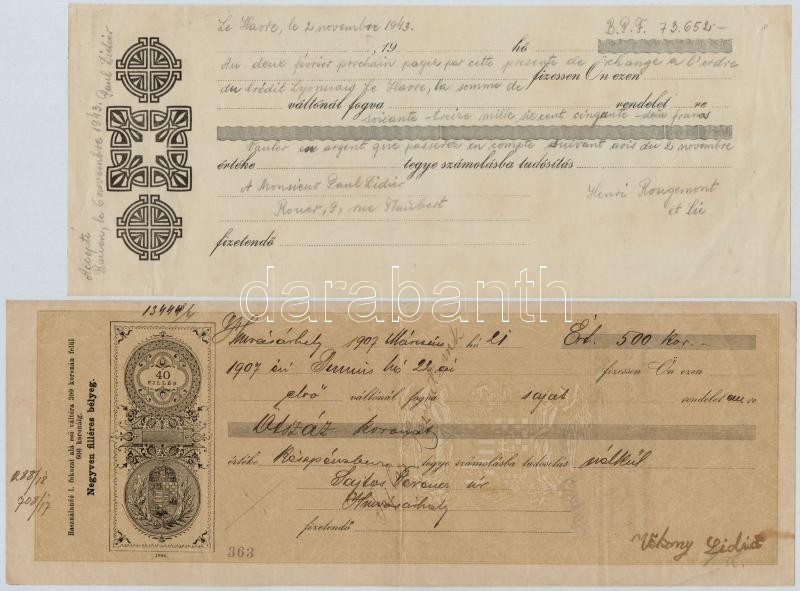 Le Havre, le 2 novembre 1943.
B.P.F. 73.652-
, 19 hó
Au deux février prochain payez par cette présente de change a l'ordre
fizessen Ön ezen
du Crédit Lyonnais Le Havre, la somme de
váltónál fogva rendelet re
soixante-treize mille six cent cinquante-deux francs
en argent que passerez en compte suivant avis du 2 novembre
értéke tegye számolásba tudósítás
A Monsieur Paul Lidiér
Henri Rougemont
Rouen, 9, rue Flaubert
et Cie
fizetendő
Accepté
Rouen, le 6 novembre 1943. Paul Lidiér
darabanth
13444/4
Hmvásárhely 1907 Március hó 21 Ért. 500 Kor.-
1907 évi Junius hó 22 én fizessen Ön ezen
első váltónál fogva saját rendeletemre
Ötszáz koronát
értéke Készpénzben tegye számolásba tudósítás nélkül
Sajtos Ferencz úr
Hmvásárhely
fizetendő
Vékony Lidia
363
40
FILLÉR
1900.
Használandó i. fokozat alá eső váltóra 300 koronán felül
600 koronáig.
Negyven filléres bélyeg.
708/17